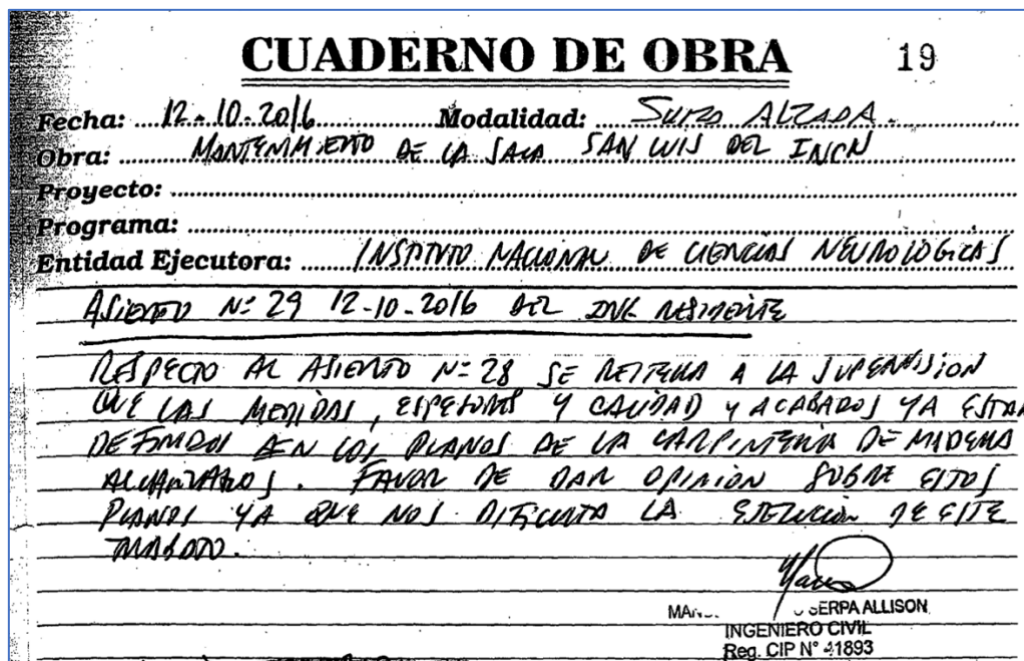 CUADERNO DE OBRA 19
Fecha: 12-10-2016 Modalidad: SUMA ALZADA.
Obra: MANTENIMIENTO DE LA SALA SAN LUIS DEL INCN
Proyecto:
Programa:
Entidad Ejecutora: INSTITUTO NACIONAL DE CIENCIAS NEUROLOGICAS
ASIENTO N= 29 12-10-2016 DEL ING RESIDENTE
RESPECTO AL ASIENTO N=28 SE REITERA A LA SUPERVISION
QUE LAS MEDIDAS, ESPESORES Y CALIDAD Y ACABADOS YA ESTAN
DEFINIDOS EN LOS PLANOS DE LA CARPINTERIA DE MADERA
ALCANZADOS. FAVOR DE DAR OPINION SOBRE ESTOS
PLANOS YA QUE NOS DIFICULTA LA EJECUCION DE ESTE
TRABAJO.
SERPA ALLISON
INGENIERO CIVIL
Reg. CIP N° 41893